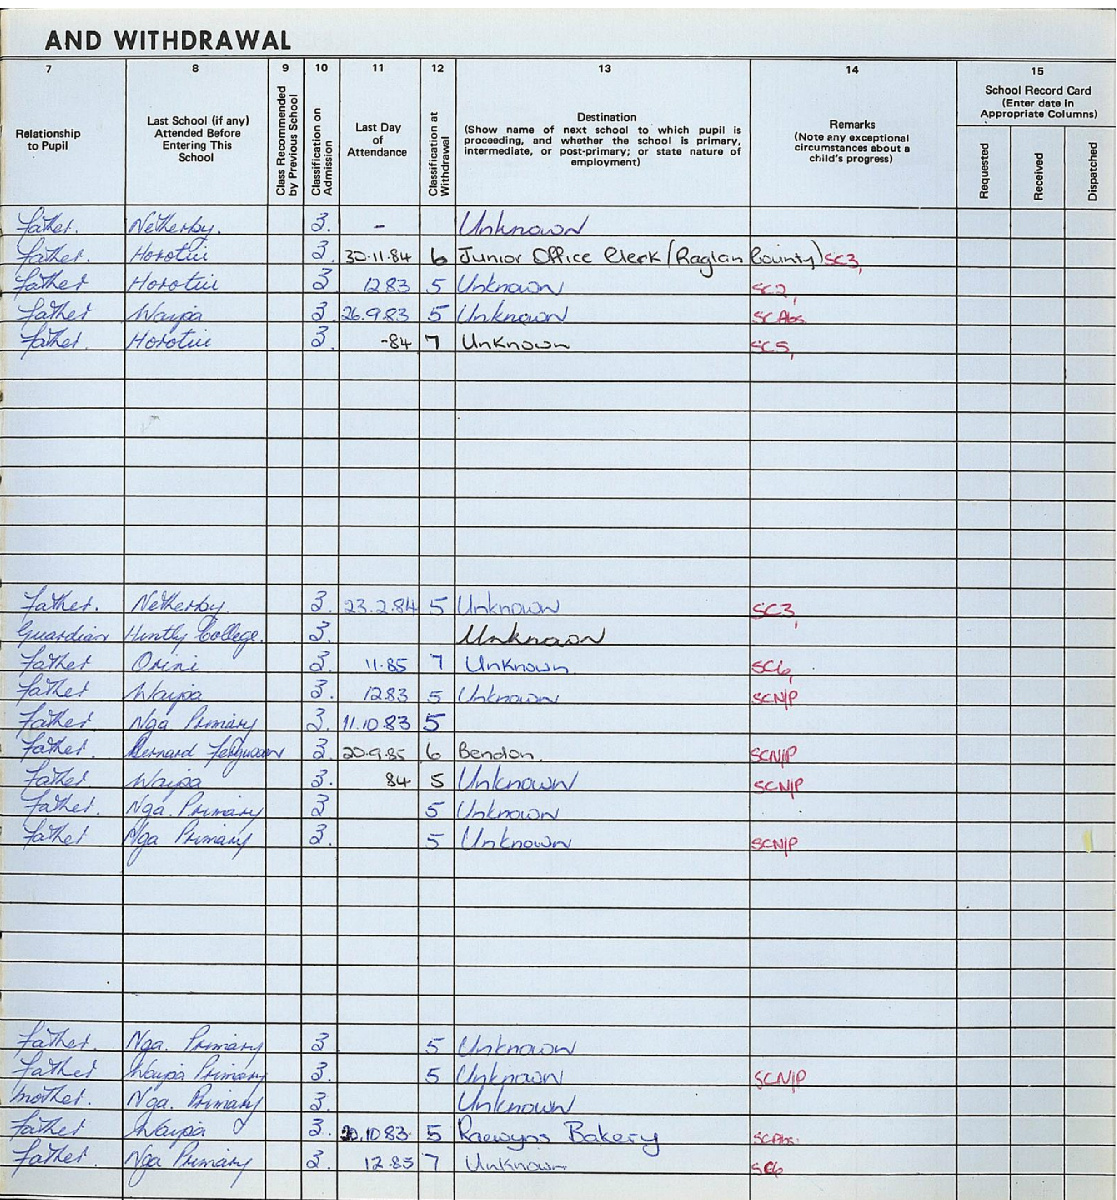 AND WITHDRAWAL
7 8 9 10 11 12 13 14 15
Relationship to Pupil
Last School (if any) Attended Before Entering This School
Class Recommended by Previous School
Classification on Admission
Last Day of Attendance
Classification at Withdrawal
Destination
(Show name of next school to which pupil is proceeding, and whether the school is primary, intermediate, or post-primary; or state nature of employment)
Remarks
(Note any exceptional circumstances about a child's progress)
School Record Card
(Enter date in Appropriate Columns)
Requested
Received
Dispatched
Father. Netherby. 3. - Unknown
Father. Horotiu 3. 30.11.84 6 Junior Office Clerk (Raglan County) SC3,
Father Horotiu 3 1283 5 Unknown SC2,
Father Waipa 3. 26.9.83 5 Unknown SCAbs
Father. Horotiu 3. -84 7 Unknown SC5,
Father. Netherby. 3. 23.2.84 5 Unknown SC3,
Guardian Huntly College. 3. Unknown
Father Orini 3. 11.85 7 Unknown SC6,
Father Waipa 3. 1283 5 Unknown SCN/P
Father Nga Primary 3. 11.10.83 5
Father Bernard Ferguson 3. 20.9.85 6 Bendon. SCN/P
Father Waipa 3. 84 5 Unknown SCN/P
Father. Nga. Primary 3 5 Unknown
Father Nga Primary 3. 5 Unknown SCN/P
Father. Nga. Primary 3 5 Unknown
Father Waipa Primary 3. 5 Unknown SCN/P
Mother. Nga. Primary 3. Unknown
Father Waipa 3. .10.83 5 Raewyns Bakery SCAbs.
Father. Nga Primary 3. 12.85 7 Unknown SC6